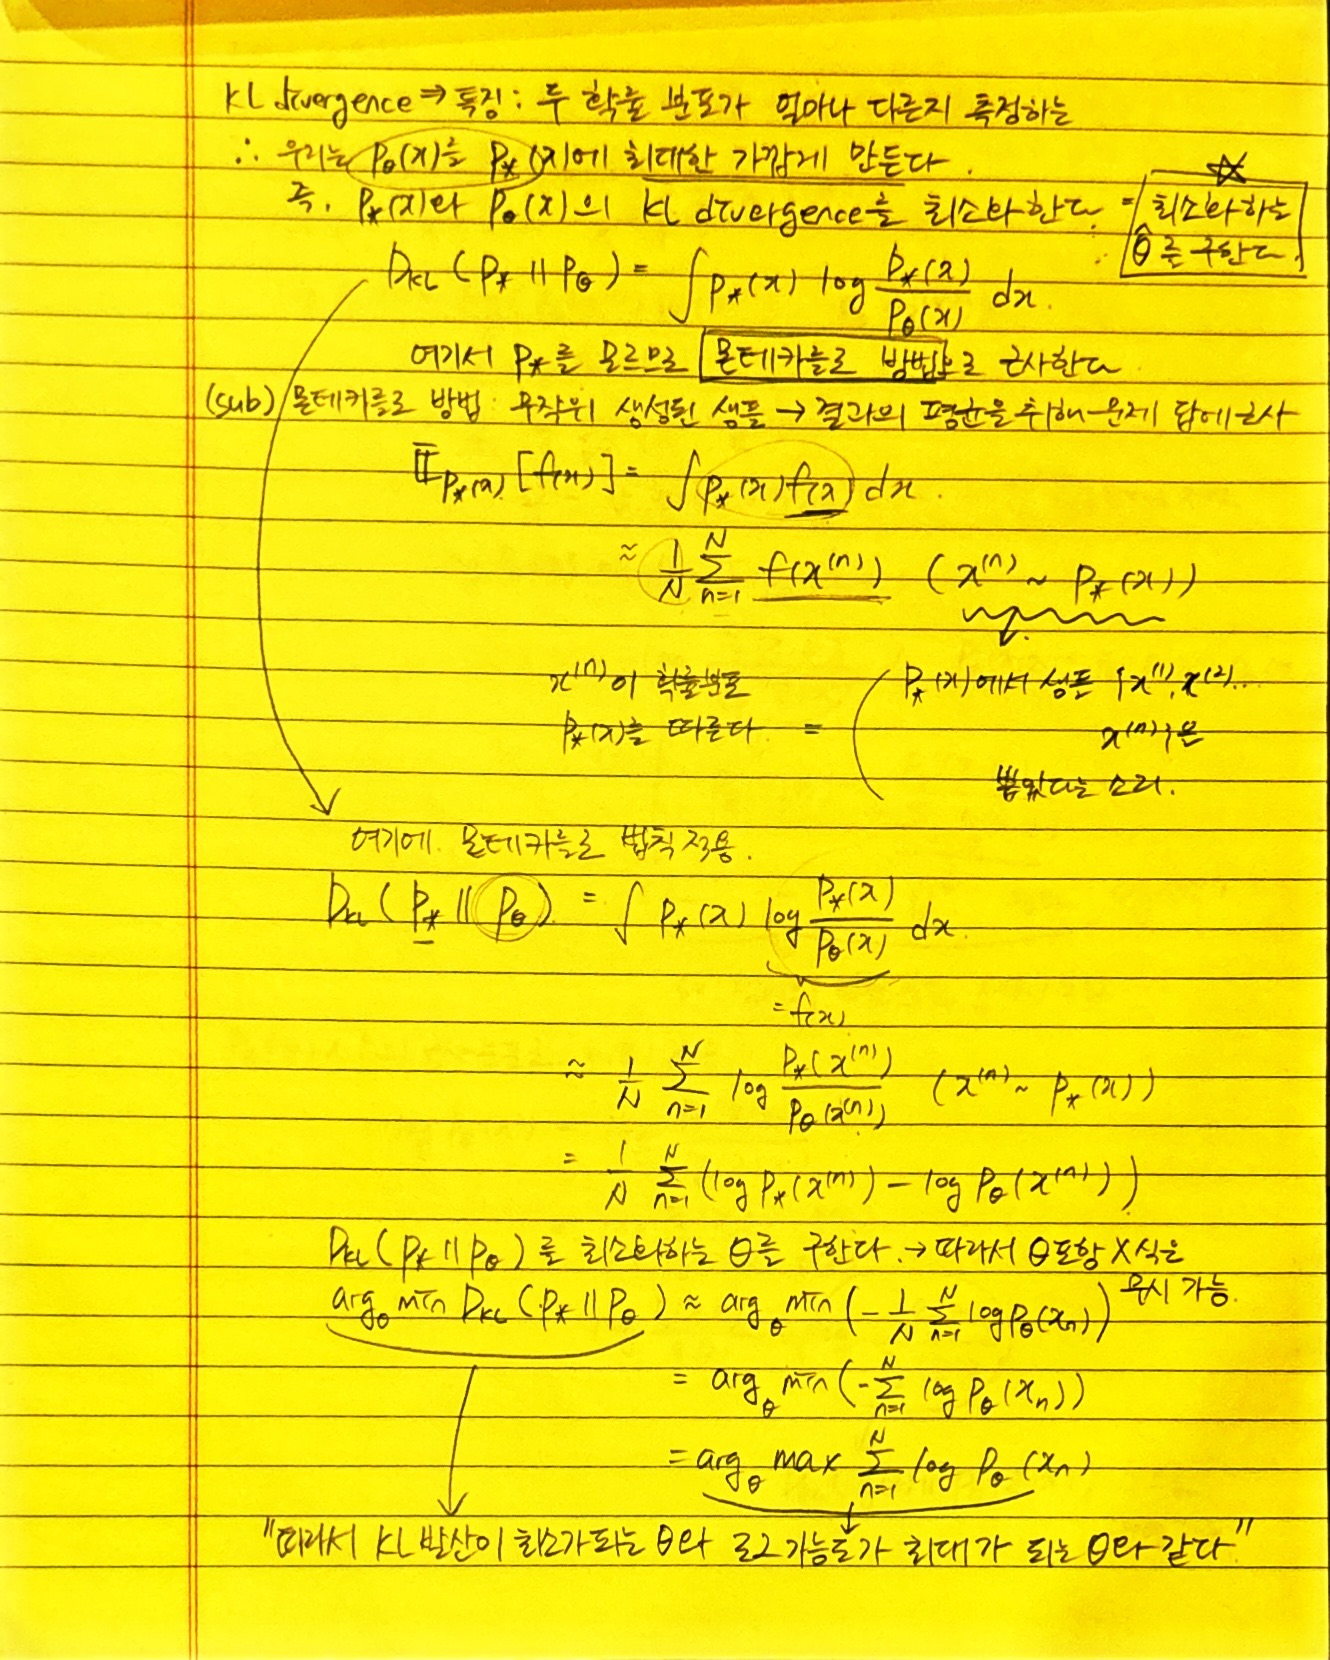 KL divergence ⇒ 특징 : 두 확률 분포가 얼마나 다른지 측정하는
∴ 우리는 P_θ(x)를 P_*(x)에 최대한 가깝게 만든다.
즉, P_*(x)와 P_θ(x)의 KL divergence를 최소화한다 = 최소화하는
θ̂를 구한다.
D_KL (P_* || P_θ) = ∫ P_*(x) log P_*(x)/P_θ(x) dx.
여기서 P_*를 모르므로 몬테카를로 방법으로 근사한다
(sub) 몬테카를로 방법 : 무작위 생성된 샘플 → 결과의 평균을 취해 문제 답에 근사
𝔼_P_*(x) [f(x)] = ∫ P_*(x) f(x) dx.
≈ 1/N Σ_{n=1}^{N} f(x^(n)) (x^(n) ~ P_*(x))
x^(n)이 확률분포
P_*(x)를 따른다 =
P_*(x)에서 샘플 {x^(1), x^(2)...
x^(n)}은
뽑았다는 소리.
여기에 몬테카를로 법칙 적용.
D_KL (P_* || P_θ) = ∫ P_*(x) log P_*(x)/P_θ(x) dx.
= f(x)
≈ 1/N Σ_{n=1}^{N} log P_*(x^(n))/P_θ(x^(n)) (x^(n) ~ P_*(x))
= 1/N Σ_{n=1}^{N} (log P_*(x^(n)) - log P_θ(x^(n)))
D_KL (P_* || P_θ)를 최소화하는 θ를 구한다. → 따라서 θ포함 X 식은
무시 가능.
arg_θ min D_KL (P_* || P_θ) ≈ arg_θ min (- 1/N Σ_{n=1}^{N} log P_θ(x_n))
= arg_θ min (- Σ_{n=1}^{N} log P_θ(x_n))
= arg_θ max Σ_{n=1}^{N} log P_θ(x_n)
"따라서 KL 발산이 최소가 되는 θ와 로그 가능도가 최대가 되는 θ와 같다"